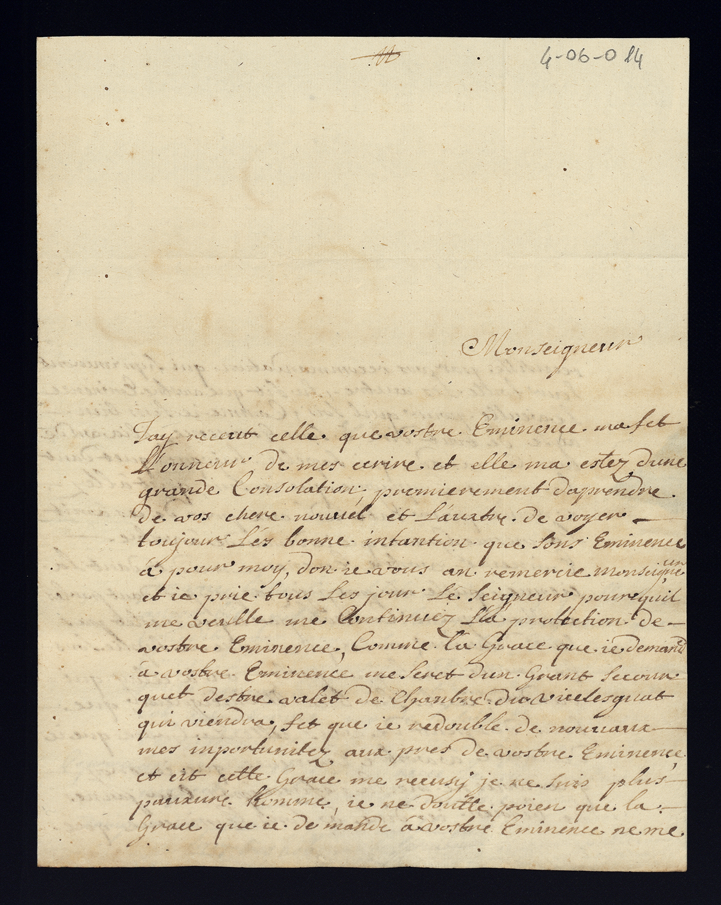 4-06-014
Monseigneur
Jay receut celle que vostre Eminence ma fet
L'onneur de mes ecrire et elle ma estez dune
grande Consolation, premierement daprendre
de vos chere nouuel et L'auutre de voyer
toujour Lés bonne intantion que Sons Eminence
a pour moy, don ie vous an remercie Monseigneur
et ie prie tous Les jour Le Seigneur pourquil
me veulle me Continuez La protection de
vostre Eminence, Comme la Grace que ie demand
à vostre Eminence me Seret dun Grant Secour
quet destre valet de Chanbre du vicelesguat
qui viendra, fet que ie redouble de nouueaux
mes inportunitez aux pres de vostre Eminence
et cit cette Grace me reusy je ne Suis plus
pauxure Homme, ie ne doutte poien que la
Grace que ie de mande à vostre Eminence ne me